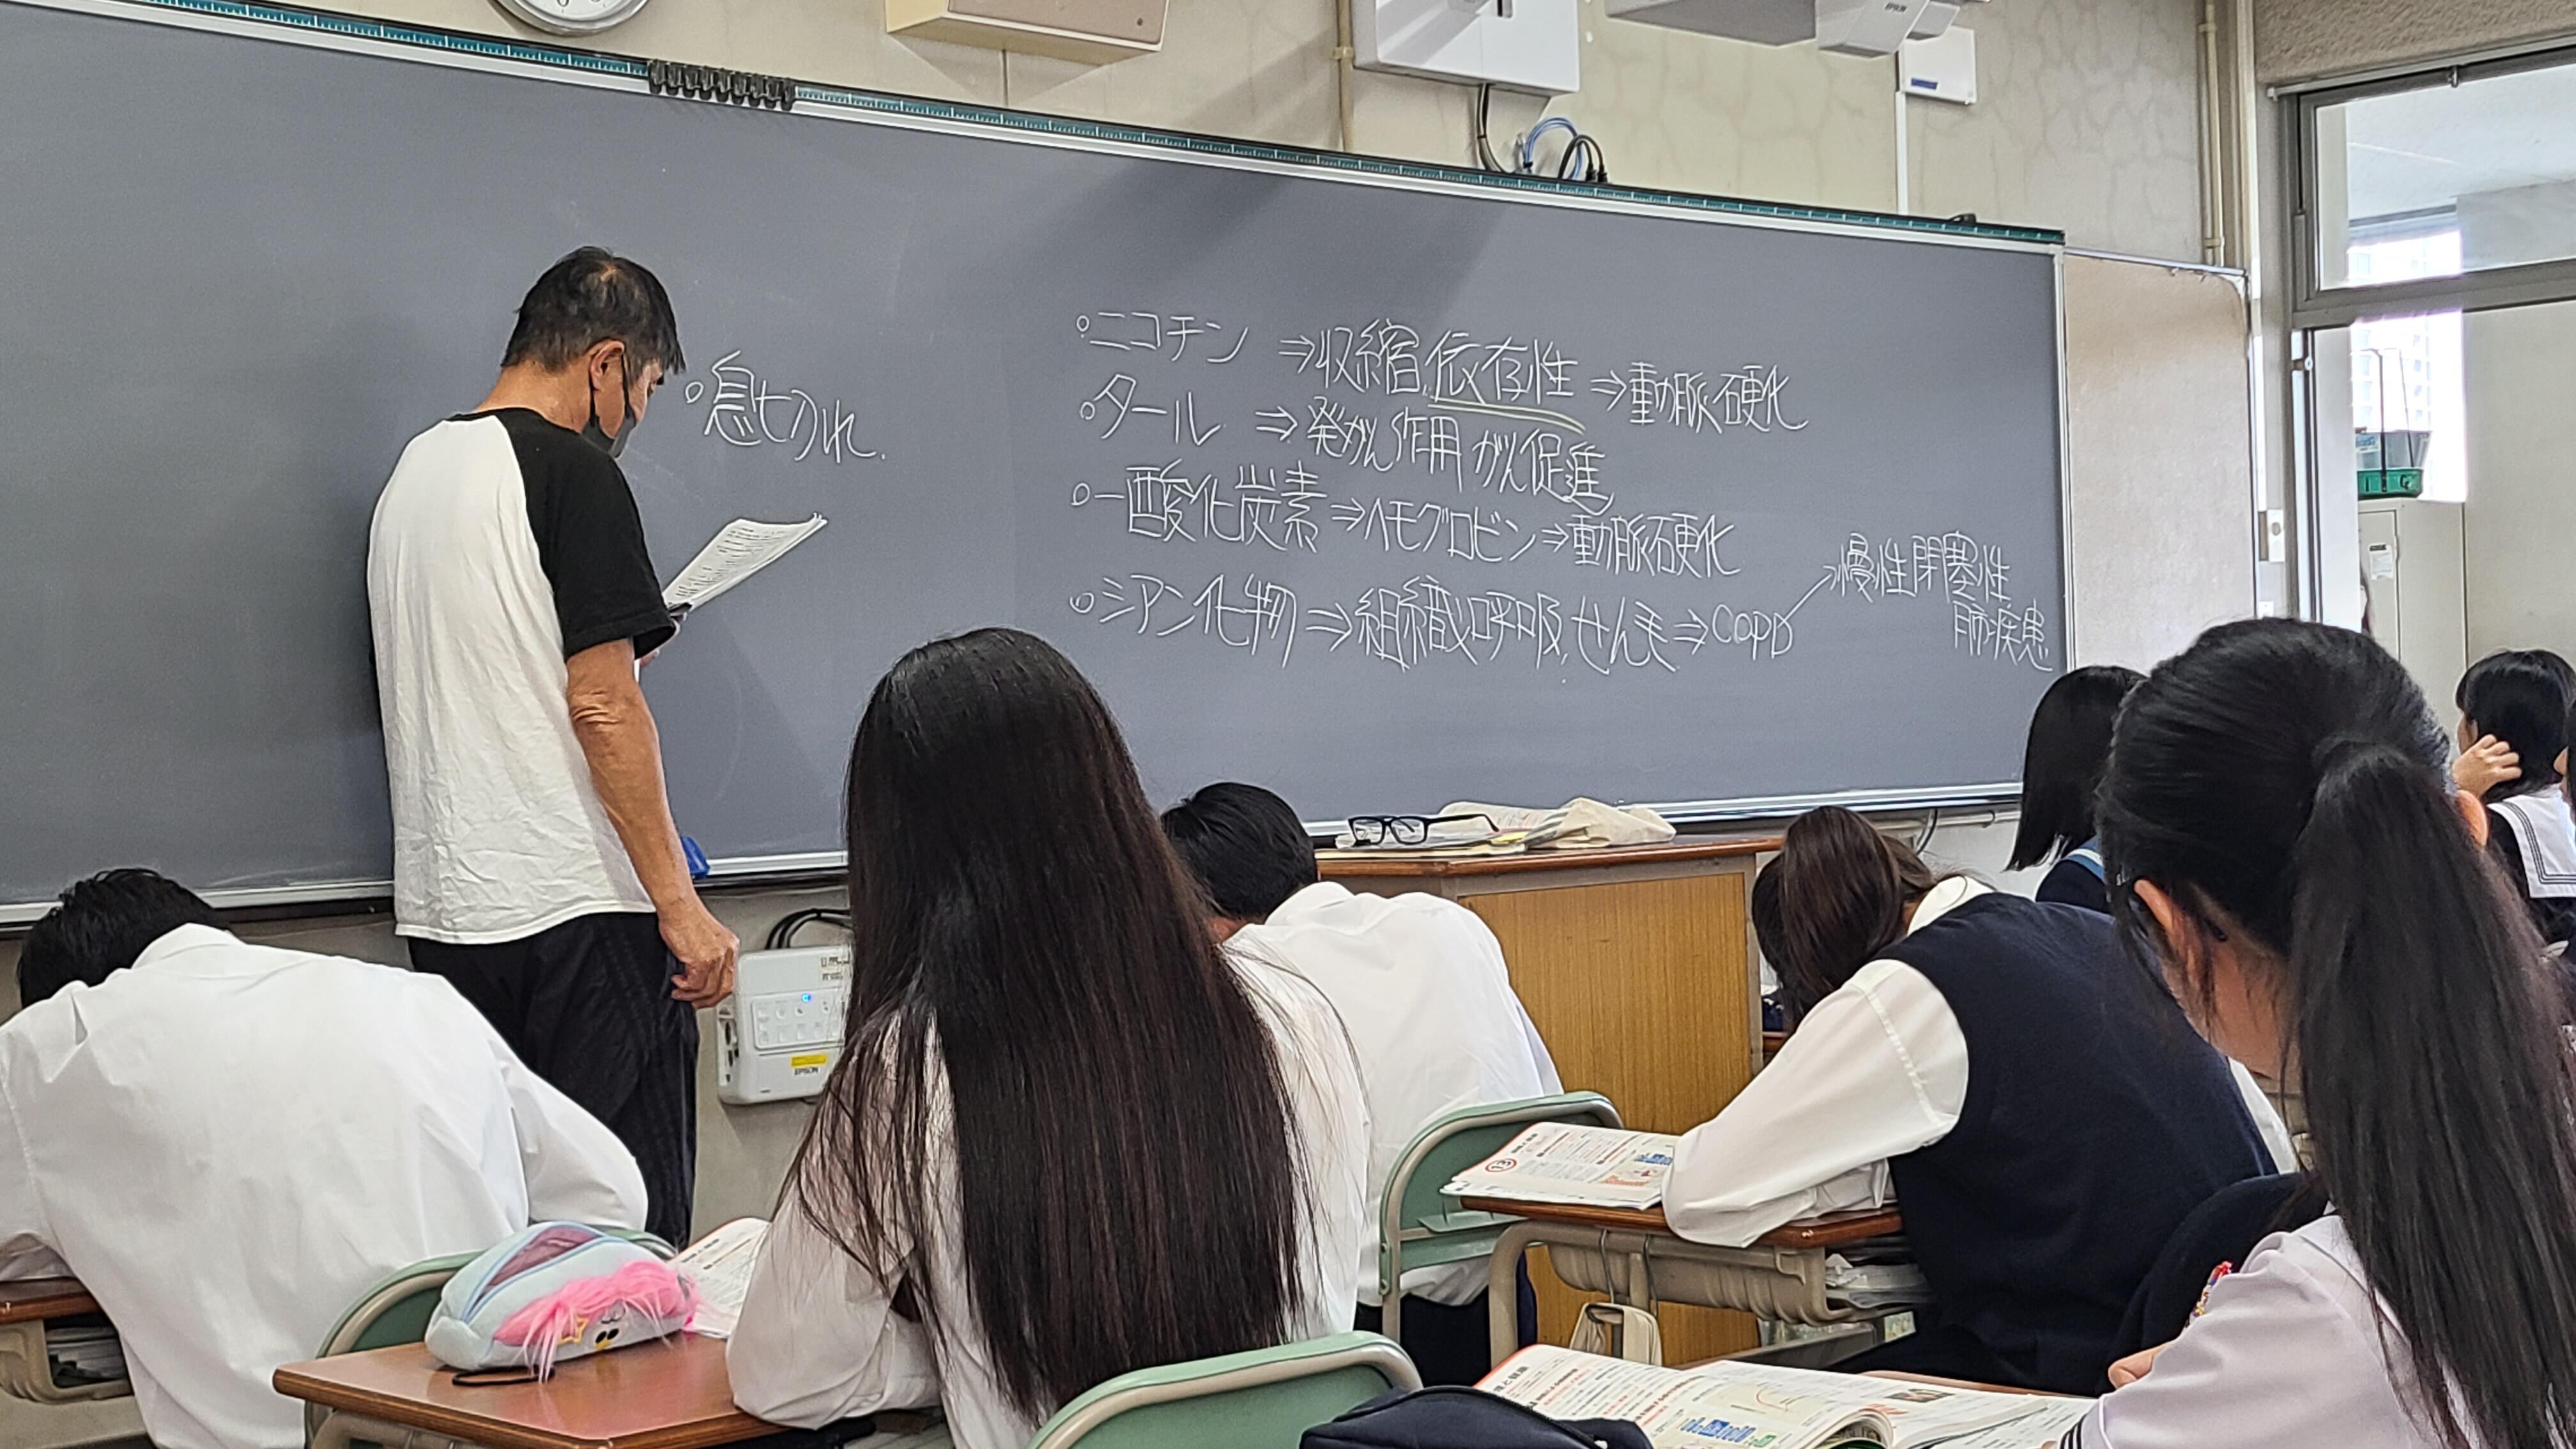 EPSON
○息切れ.
○ニコチン ⇒収縮,依存性 ⇒動脈硬化
○タール ⇒発がん作用 がん促進
○一酸化炭素⇒ヘモグロビン⇒動脈硬化
○シアン化物⇒組織呼吸,せん毛⇒COPD→慢性閉塞性
肺疾患
EPSON
13